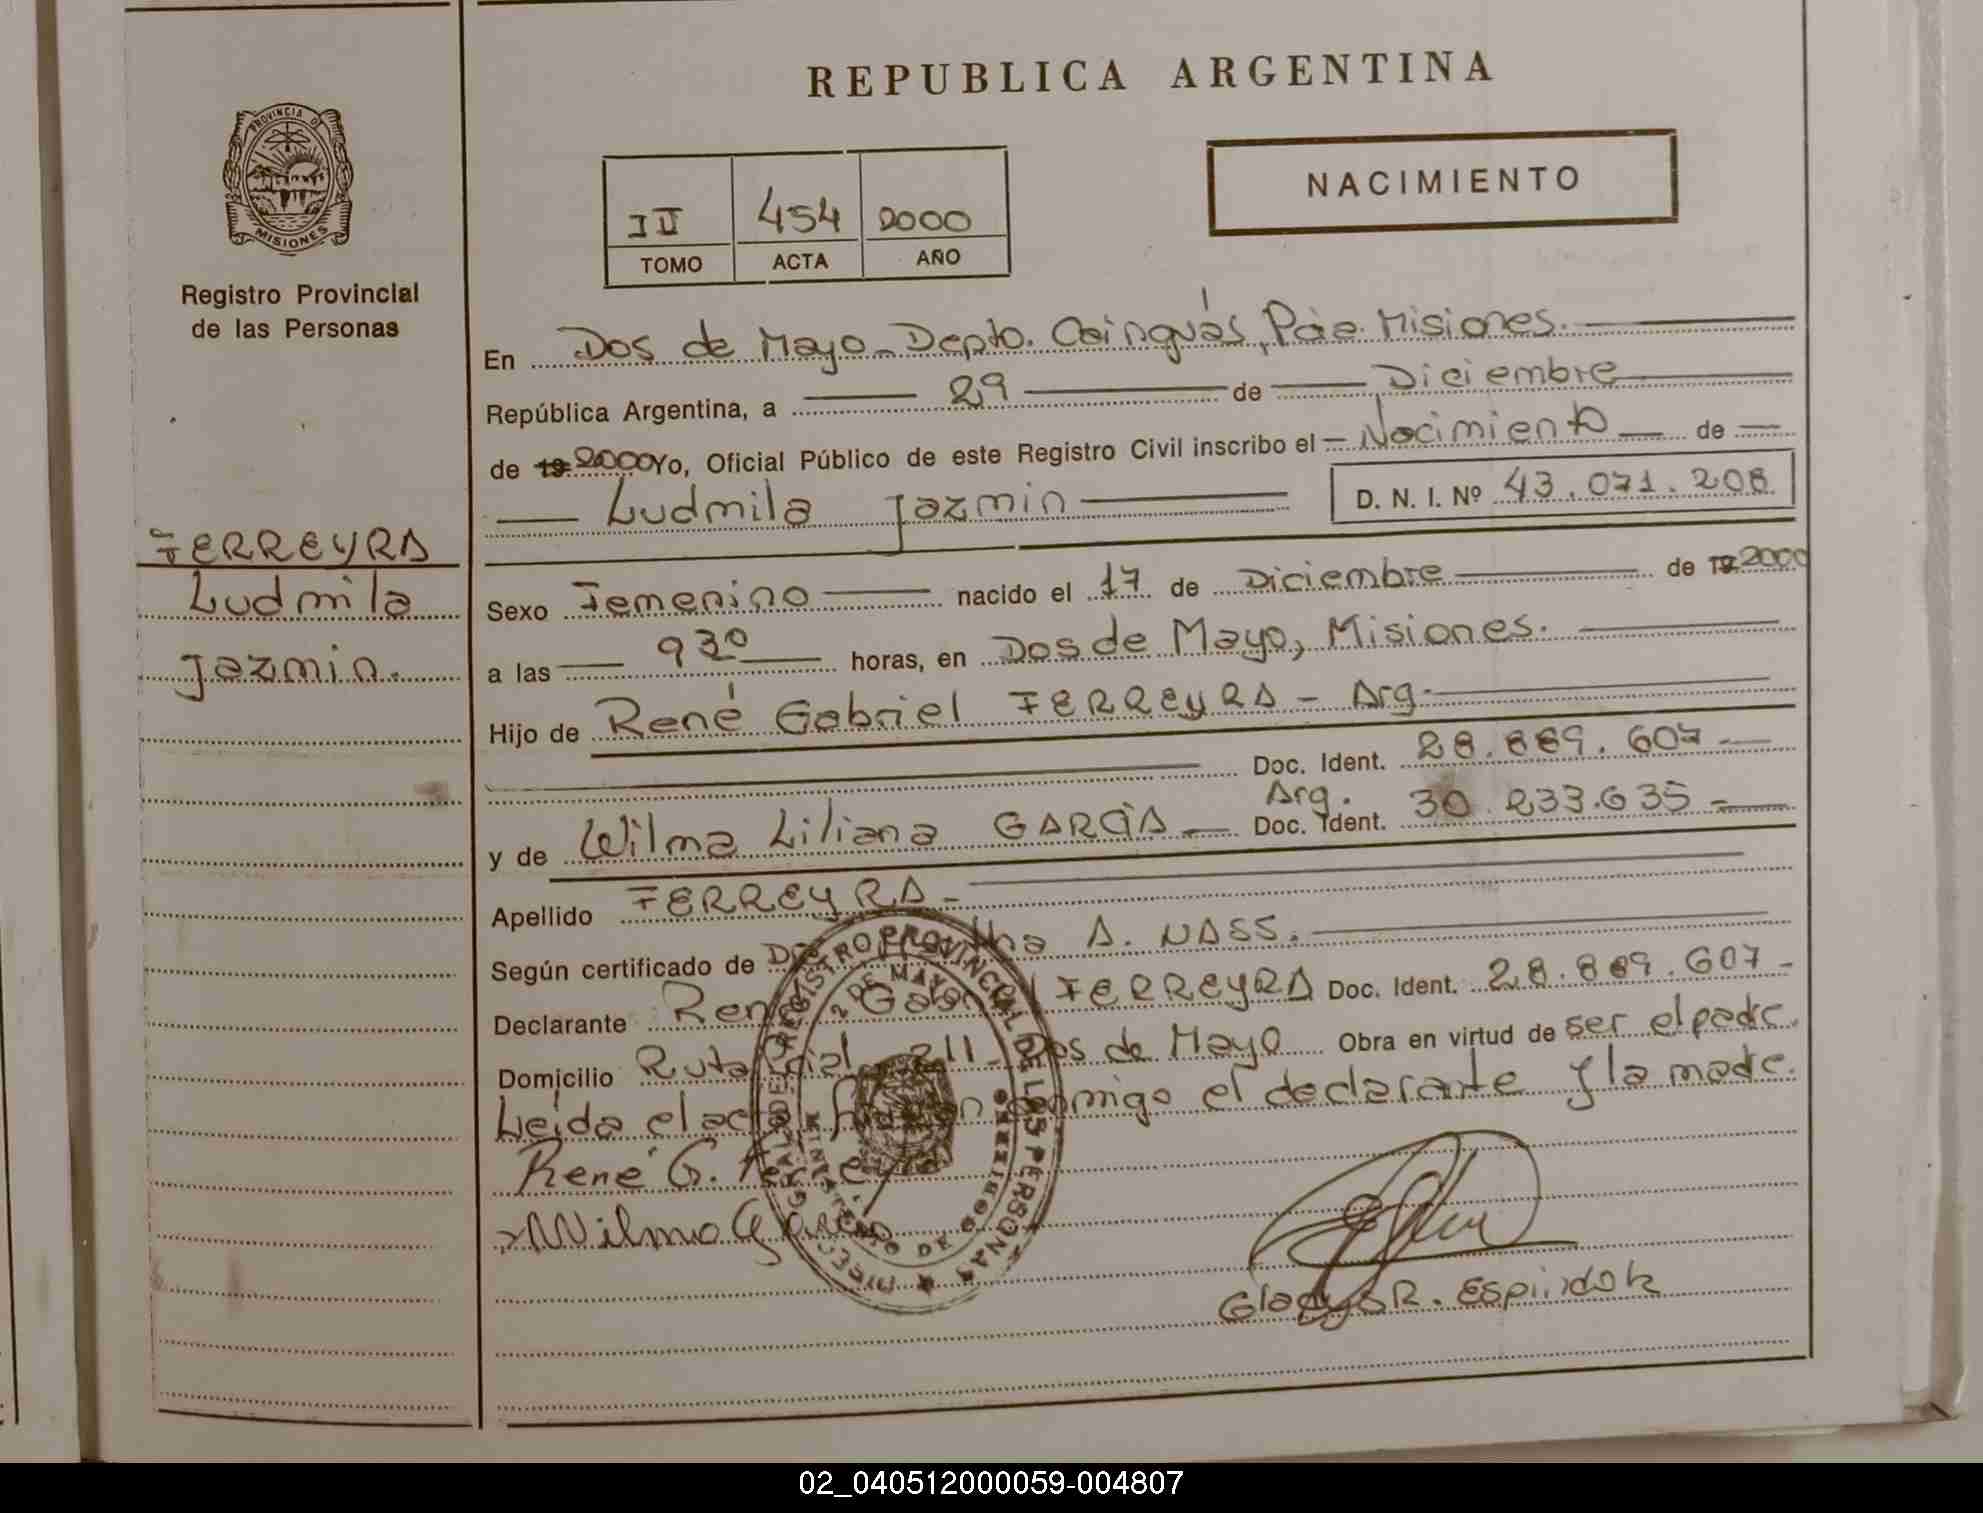 PROVINCIA D
MISIONES
Registro Provincial
de las Personas
FERREYRA
Ludmila
Jazmin.
REPUBLICA ARGENTINA
II 454 2000
TOMO ACTA AÑO
NACIMIENTO
En Dos de Mayo - Depto. Cainguás, Pcia. Misiones.
República Argentina, a 29 de Diciembre
de 19 2000 Yo, Oficial Público de este Registro Civil inscribo el Nacimiento de
Ludmila Jazmin D. N. I. Nº 43.071.208
Sexo Femenino nacido el 17 de Diciembre de 19 2000
a las 930 horas, en Dos de Mayo, Misiones.
Hijo de René Gabriel FERREYRA - Arg.
Doc. Ident. 28.889.607
Arg.
y de Wilma Liliana GARCÍA Doc. Ident. 30.233.635
Apellido FERREYRA
Según certificado de A. NASS.
Declarante René Gabriel FERREYRA Doc. Ident. 28.889.607
Domicilio Ruta 211 - Dos de Mayo Obra en virtud de ser el padre.
Leída el acta firman conmigo el declarante y la madre.
René G. Ferreyra
Wilma Garcia
REGISTRO PROVINCIAL DE LAS PERSONAS
2 DE MAYO
MINISTERIO DE GOBIERNO
Gladys R. Espindola
02_040512000059-004807